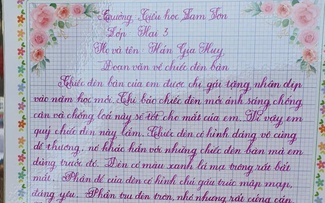 Trường Tiểu học Lam Sơn
Lớp Hai 3
Họ và tên Hán Gia Huy
Đoạn văn về chiếc đèn bàn
Chiếc đèn bàn của em được chị gái tặng nhân dịp
vào năm học mới. Chị bảo chiếc đèn mới ánh sáng chống
cận và chống loá này sẽ tốt cho mắt của em. Vì vậy em
quý chiếc đèn này lắm. Chiếc đèn có hình dáng vô cùng
dễ thương, nó khác hẳn với những chiếc đèn bàn mà em
dùng trước đó. Đèn có màu xanh lá mạ trông rất bắt
mắt. Phần đế của đèn có hình chú gấu trúc mập mạp,
đáng yêu. Phần trụ đèn tròn, nhỏ nhưng rất cứng cáp